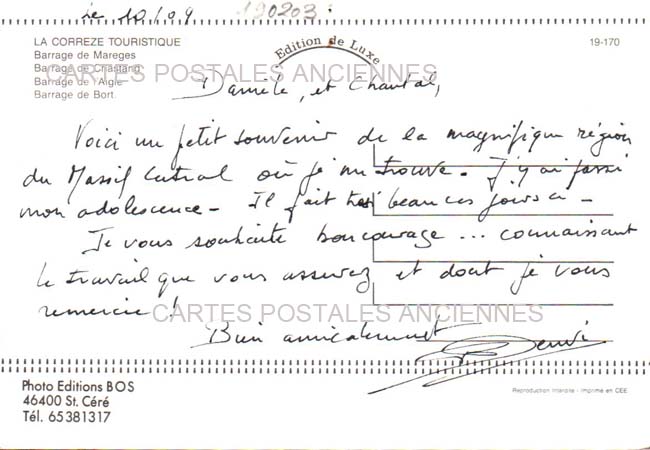 Le 10/09 190203:
Edition de Luxe
LA CORREZE TOURISTIQUE
19-170
Barrage de Mareges
Barrage de Chastang
Barrage de l'Aigle
Barrage de Bort.
CARTES POSTALES ANCIENNES
Danièle, et Chantal,
Voici un petit souvenir de la magnifique région
du Massif Central où je me trouve. J'y ai passé
mon adolescence. Il fait très beau ces jours ci.
Je vous souhaite bon courage ... connaissant
le travail que vous assurez et dont je vous
remercie !
CARTES POSTALES ANCIENNES
Bien amicalement
Photo Editions BOS
46400 St. Céré
Tél. 65381317
Reproduction Interdite - Imprimé en CEE